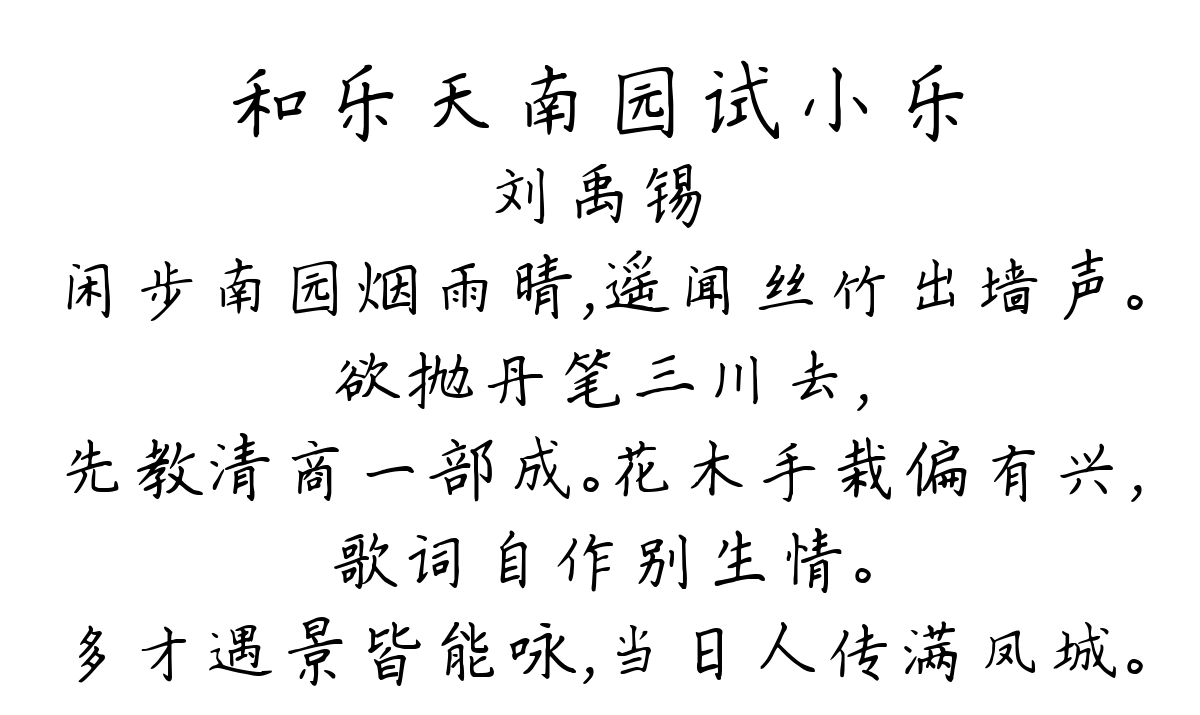 和乐天南园试小乐
刘禹锡
闲步南园烟雨晴,遥闻丝竹出墙声。
欲抛丹笔三川去,
先教清商一部成。花木手栽偏有兴,
歌词自作别生情。
多才遇景皆能咏,当日人传满凤城。